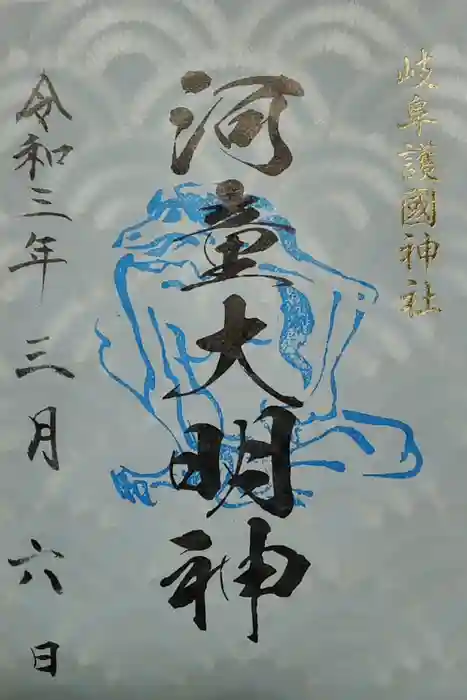 岐阜護國神社
河童大明神
令和三年三月六日